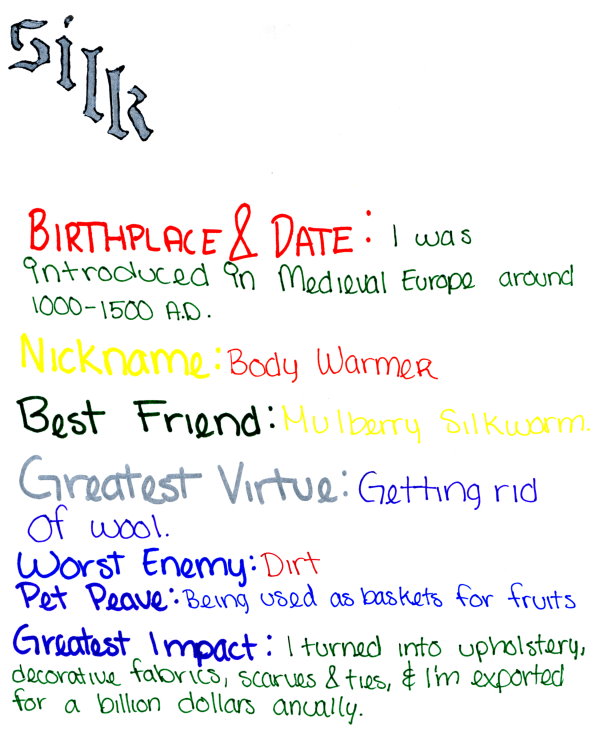 Silk
BIRTHPLACE & DATE: I was
introduced in Medieval Europe around
1000-1500 A.D.
Nickname: Body Warmer
Best Friend: Mulberry Silkworm.
Greatest Virtue: Getting rid
of wool.
Worst Enemy: Dirt
Pet Peave: Being used as baskets for fruits
Greatest Impact: I turned into upholstery,
decorative fabrics, scarves & ties, & I'm exported
for a billion dollars anually.